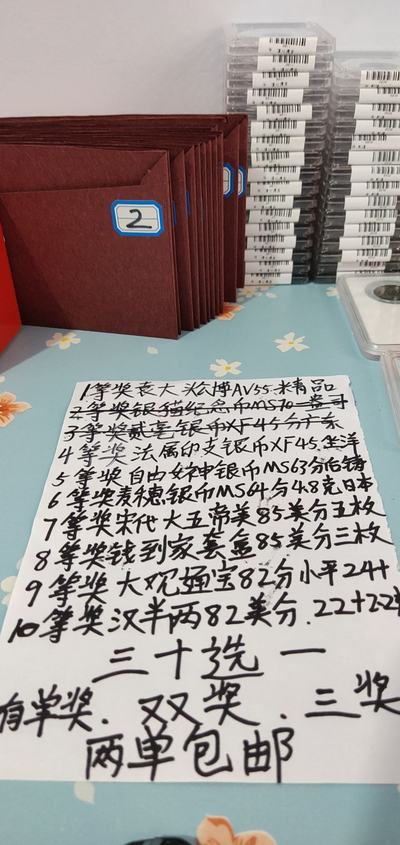 2
1等奖袁大头公博AV55.精品
2等奖银猫纪念币MS70一盎司
3等奖贰毫银币XF45分广东
4等奖法属印支银币XF45.坐洋
5等奖自由女神银币MS63分后铸
6等奖麦穗银币MS64分4.8克日本
7等奖宋代大五帝美85美分五枚
8等奖钱到家套盒85美分三枚
9等奖大观通宝82分小平24+
10等奖汉半两82美分.22+22
三十选一
有单奖.双奖.三奖
两单包邮